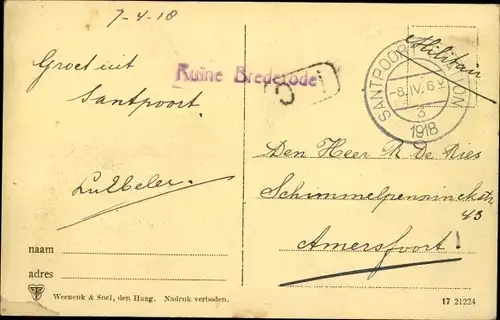 7-4-18
Groet uit
Santpoort.
Ruïne Brederode
SANTPOORT STATION
-8.IV.6
3
1918
Militair
Den Heer R De Ries
Schimmelpenninckstr
43
Amersfoort!
naam
adres
Weenenk & Snel, den Haag. Nadruk verboden.
17 21224